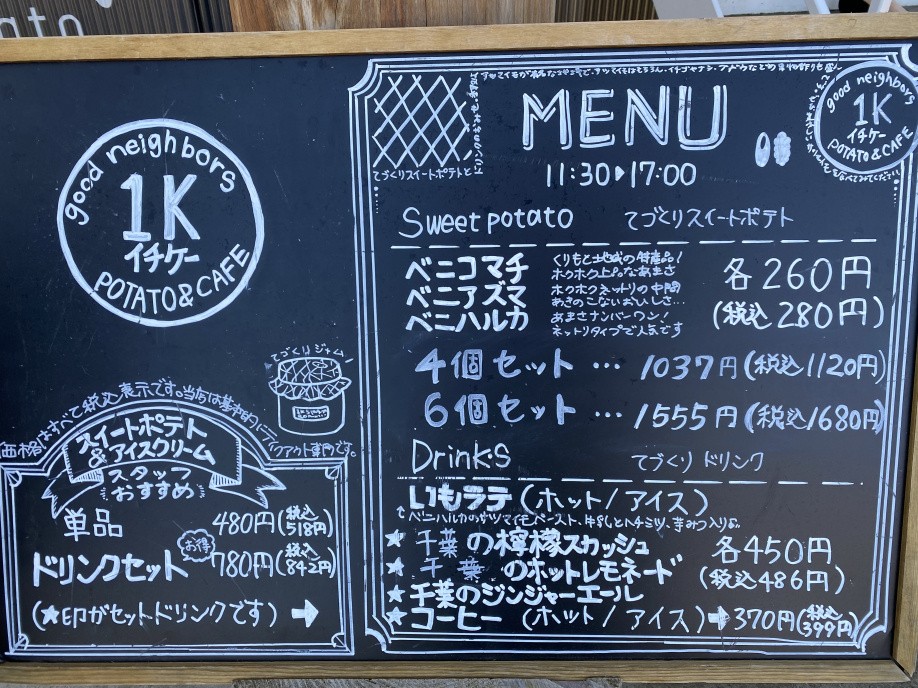 ato
good neighbors
1K
イチケー
POTATO & CAFE
てづくりジャム!
価格はすべて税込表示です。当店は基本的にテイクアウト専門です。
スイートポテト
&アイスクリーム
スタッフ
おすすめ
単品 480円(税込518円)
ドリンクセット お得 780円(税込842円)
(★印がセットドリンクです) →
MENU
11:30▶17:00
てづくりスイートポテトと
good neighbors
1K
イチケー
POTATO & CAFE
Sweet potato てづくりスイートポテト
ベニコマチ
ベニアズマ
ベニハルカ
くりもと地域の特産品!
ホクホク上品なあまさ
ホクホクとネットリの中間
あきのこないおいしさ…
あまさナンバーワン!
ネットリタイプで人気です
各260円
(税込280円)
4個セット … 1037円(税込1120円)
6個セット … 1555円(税込1680円)
Drinks てづくりドリンク
いもラテ(ホット/アイス)
ベニハルカのサツマイモペースト、牛乳とハチミツ、
★千葉の檸檬スカッシュ
★千葉のホットレモネード
各450円
(税込486円)
★千葉のジンジャーエール
★コーヒー (ホット/アイス)→370円(税込399円)